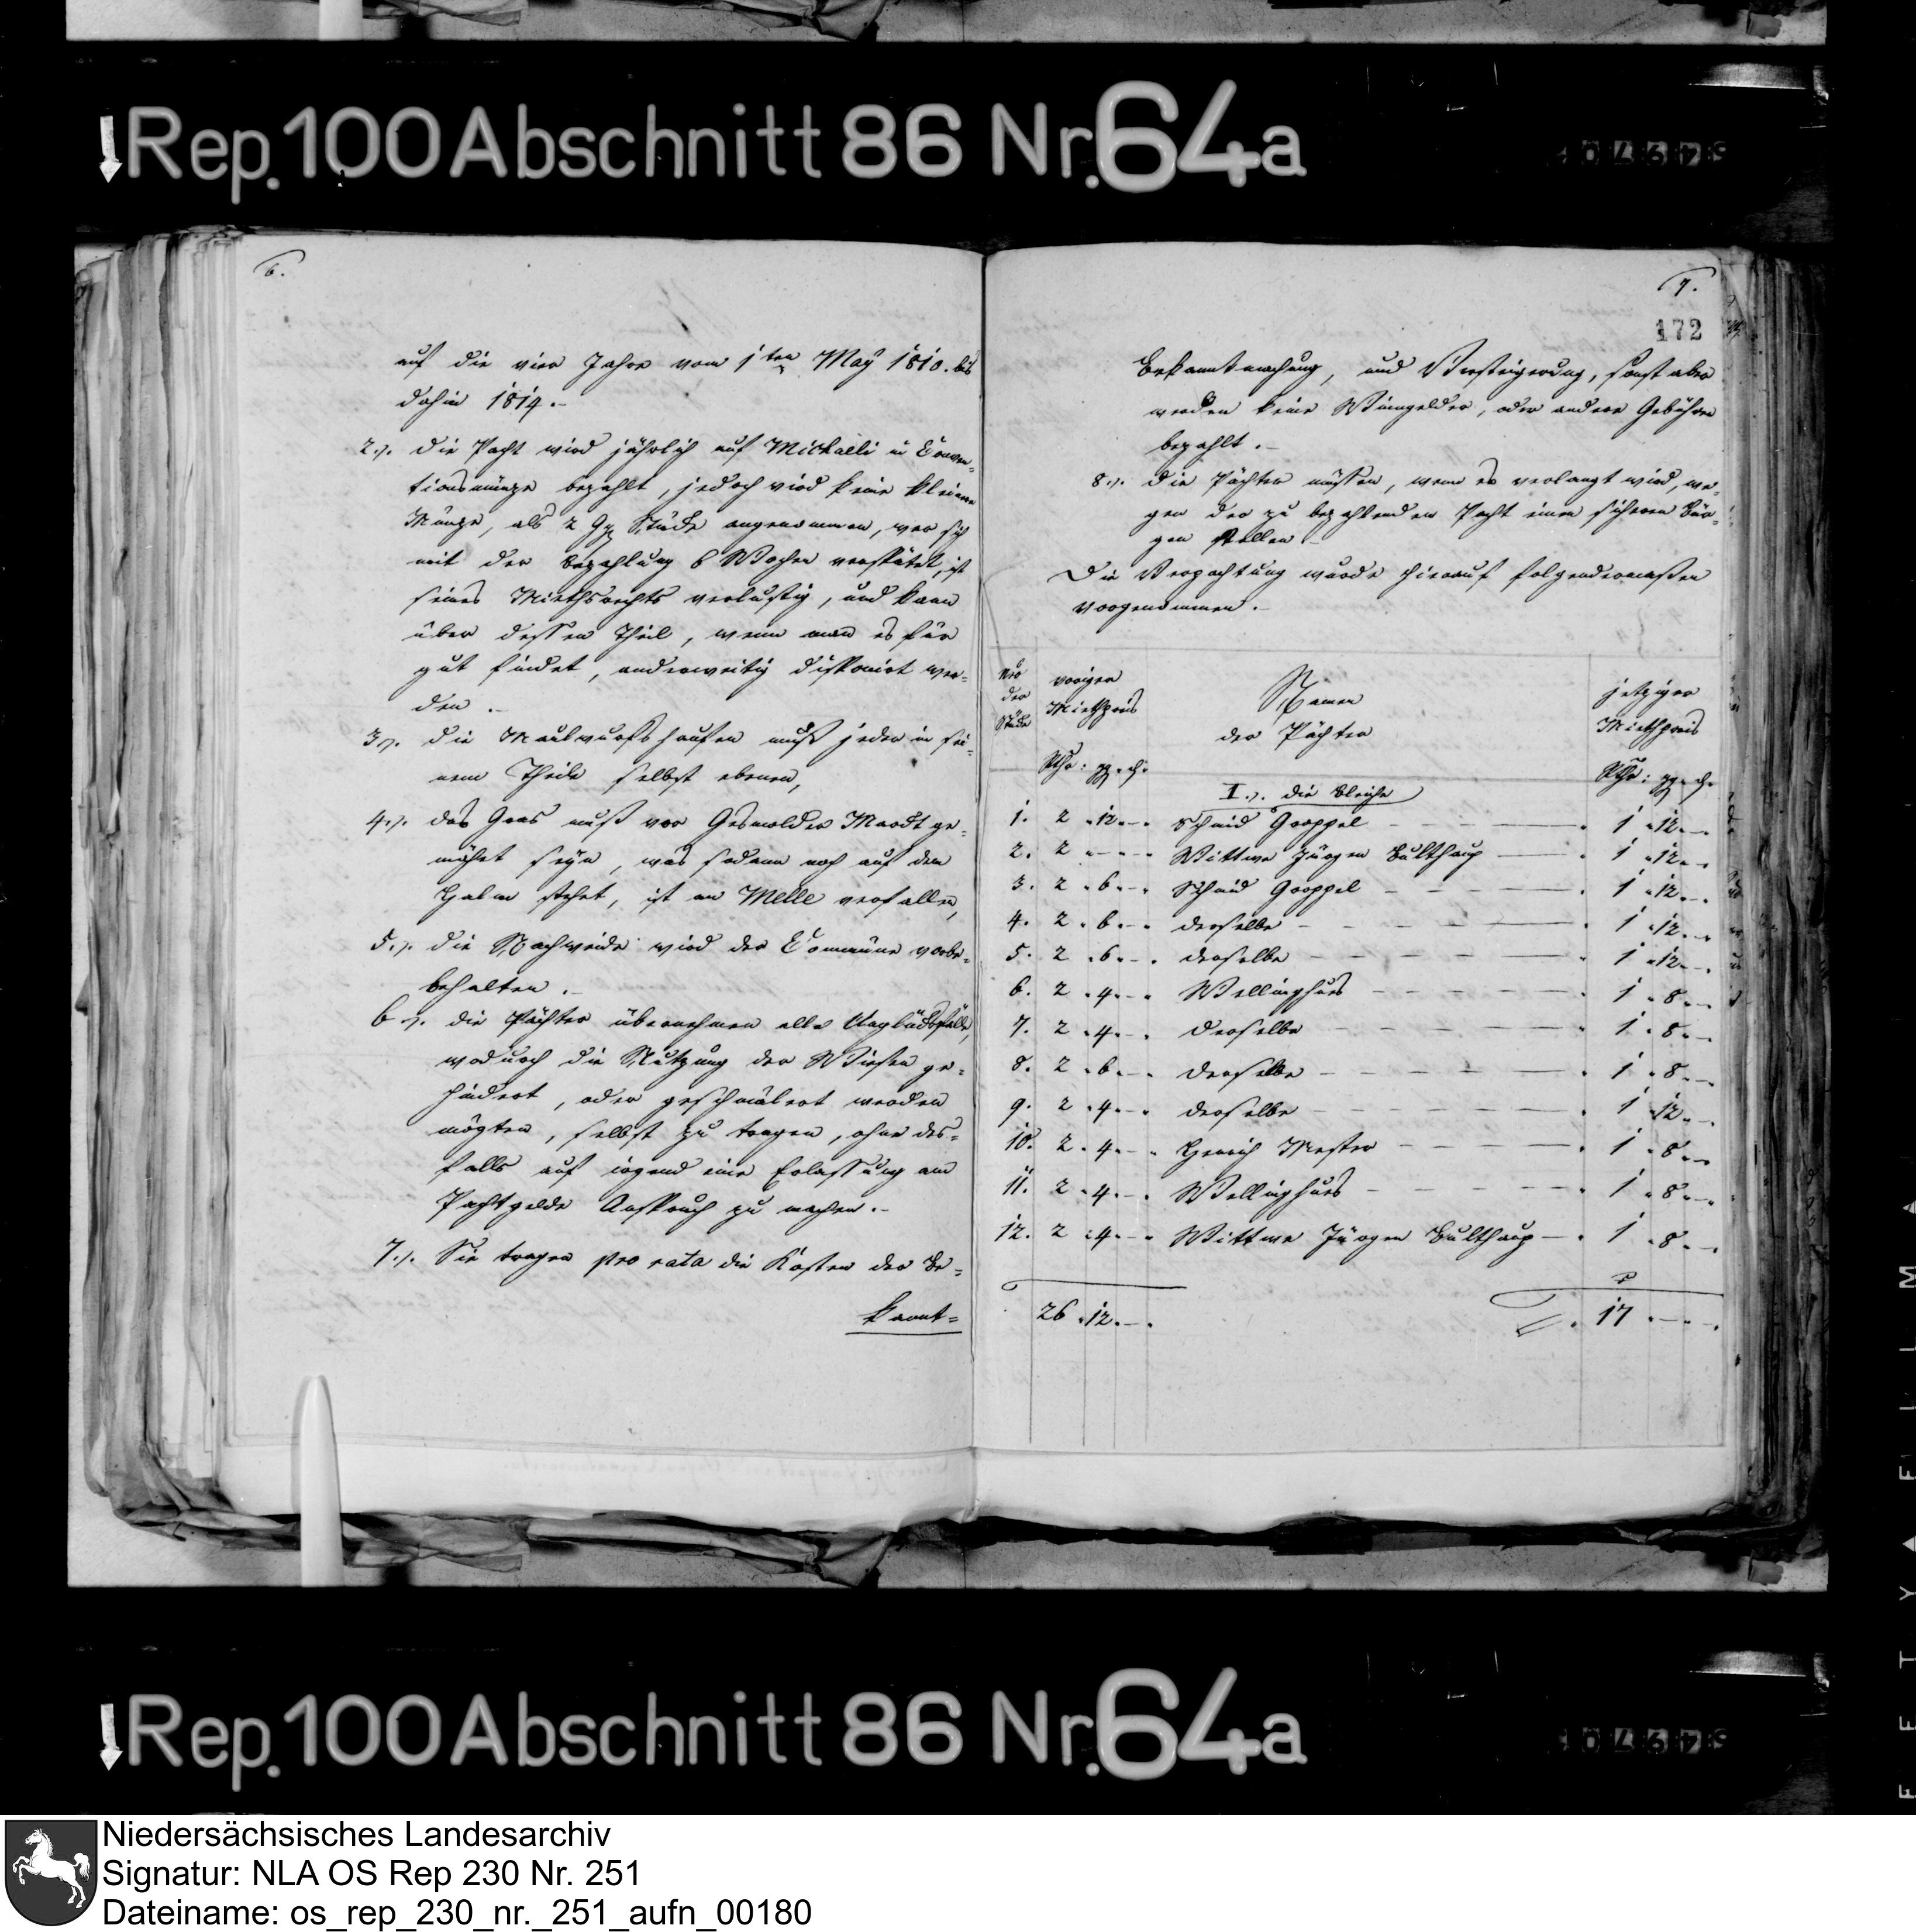 Rep. 100 Abschnitt 86 Nr. 64a
6.
auf die vier Jahre vom 1ten May 1810. bis
dahin 1814.-
2.). die Pacht wird jährlich auf Michaelis in Conven-
tionsmünze bezahlt, jedoch wird keine kleinere
Münze, als 2 Ggr Stücke angenommen, wer sich
mit der Bezahlung 6 Wochen verspätet, ist
seines Miethsrechts verlustig, und kann
über dessen Theil, wenn man es für
gut findet, anderweitig disponirt wer-
den.-
3.). die Maulwurfshaufen muß jeder in sei-
nem Theile selbst ebenen,
4.). das Gras muß vor Gesmolder Markt ge-
mähet seyn, was sodann noch auf dem
Halm stehet, ist an Melle verfallen,
5.). die Nachweide wird der Commüne vorbe-
behalten.-
6.). die Pächter übernehmen alle Unglücksfälle,
wodurch die Nutzung der Wiesen ge-
hindert, oder geschmälert werden
mögten, selbst zu tragen, ohne des-
falls auf irgend eine Erlassung am
Pachtgelde Anspruch zu machen.-
7.). Sie tragen pro rata die Kosten der Be-
kannt-
7.
172
Bekanntmachung, und Versteigerung, sonst aber
werden keine Weingelder, oder andere Gebühren
bezahlt.-
8.). die Pächter müssen, wenn es verlangt wird, we-
gen der zu bezahlenden Pacht einen sicheren Bür-
gen stellen.-
Die Verpachtung wurde hierauf folgendermaßen
vorgenommen.-
Nro der Stücke
voriger Miethpreis
Namen der Pächter
jetziger Miethpreis
Rthr: ggr. d.
Rthr: ggr. d.
I.). die Bleiche
1. 2 . 12 . - . Schmid Groppel - - - 1 . 12 . - .
2. 2 . - . - . Wittwe Jürgen Bulthaup - 1 . 12 . - .
3. 2 . 6 . - . Schmid Groppel - - - 1 . 12 . - .
4. 2 . 6 . - . derselbe - - - 1 . 12 . - .
5. 2 . 6 . - . derselbe - - - 1 . 12 . - .
6. 2 . 4 . - . Wellinghues - - - 1 . 8 . - .
7. 2 . 4 . - . derselbe - - - 1 . 8 . - .
8. 2 . 6 . - . derselbe - - - 1 . 8 . - .
9. 2 . 4 . - . derselbe - - - 1 . 12 . - .
10. 2 . 4 . - . Henrich Mester - - - 1 . 8 . - .
11. 2 . 4 . - . Wellinghues - - - 1 . 8 . - .
12. 2 . 4 . - . Wittwe Jürgen Bulthaup - 1 . 8 . - .
26 . 12 . - . 17 . - . - .
Rep. 100 Abschnitt 86 Nr. 64a
Niedersächsisches Landesarchiv
Signatur: NLA OS Rep 230 Nr. 251
Dateiname: os_rep_230_nr._251_aufn_00180